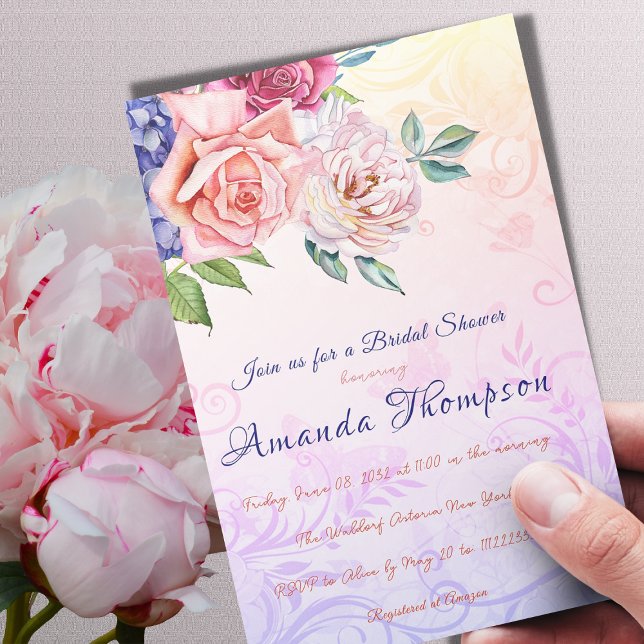 Join us for a Bridal Shower
honoring
Amanda Thompson
Friday, June 08, 2032 at 11:00 in the morning
The Waldorf Astoria New York
RSVP to Alice by May 20 to:
Registered at Amazon